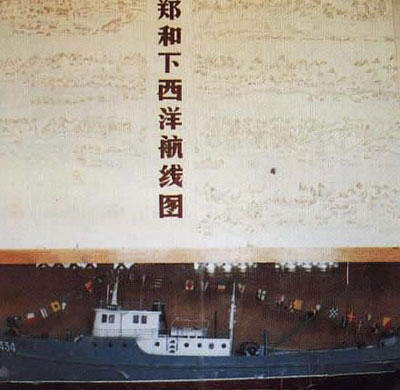 郑和下西洋航线图
434